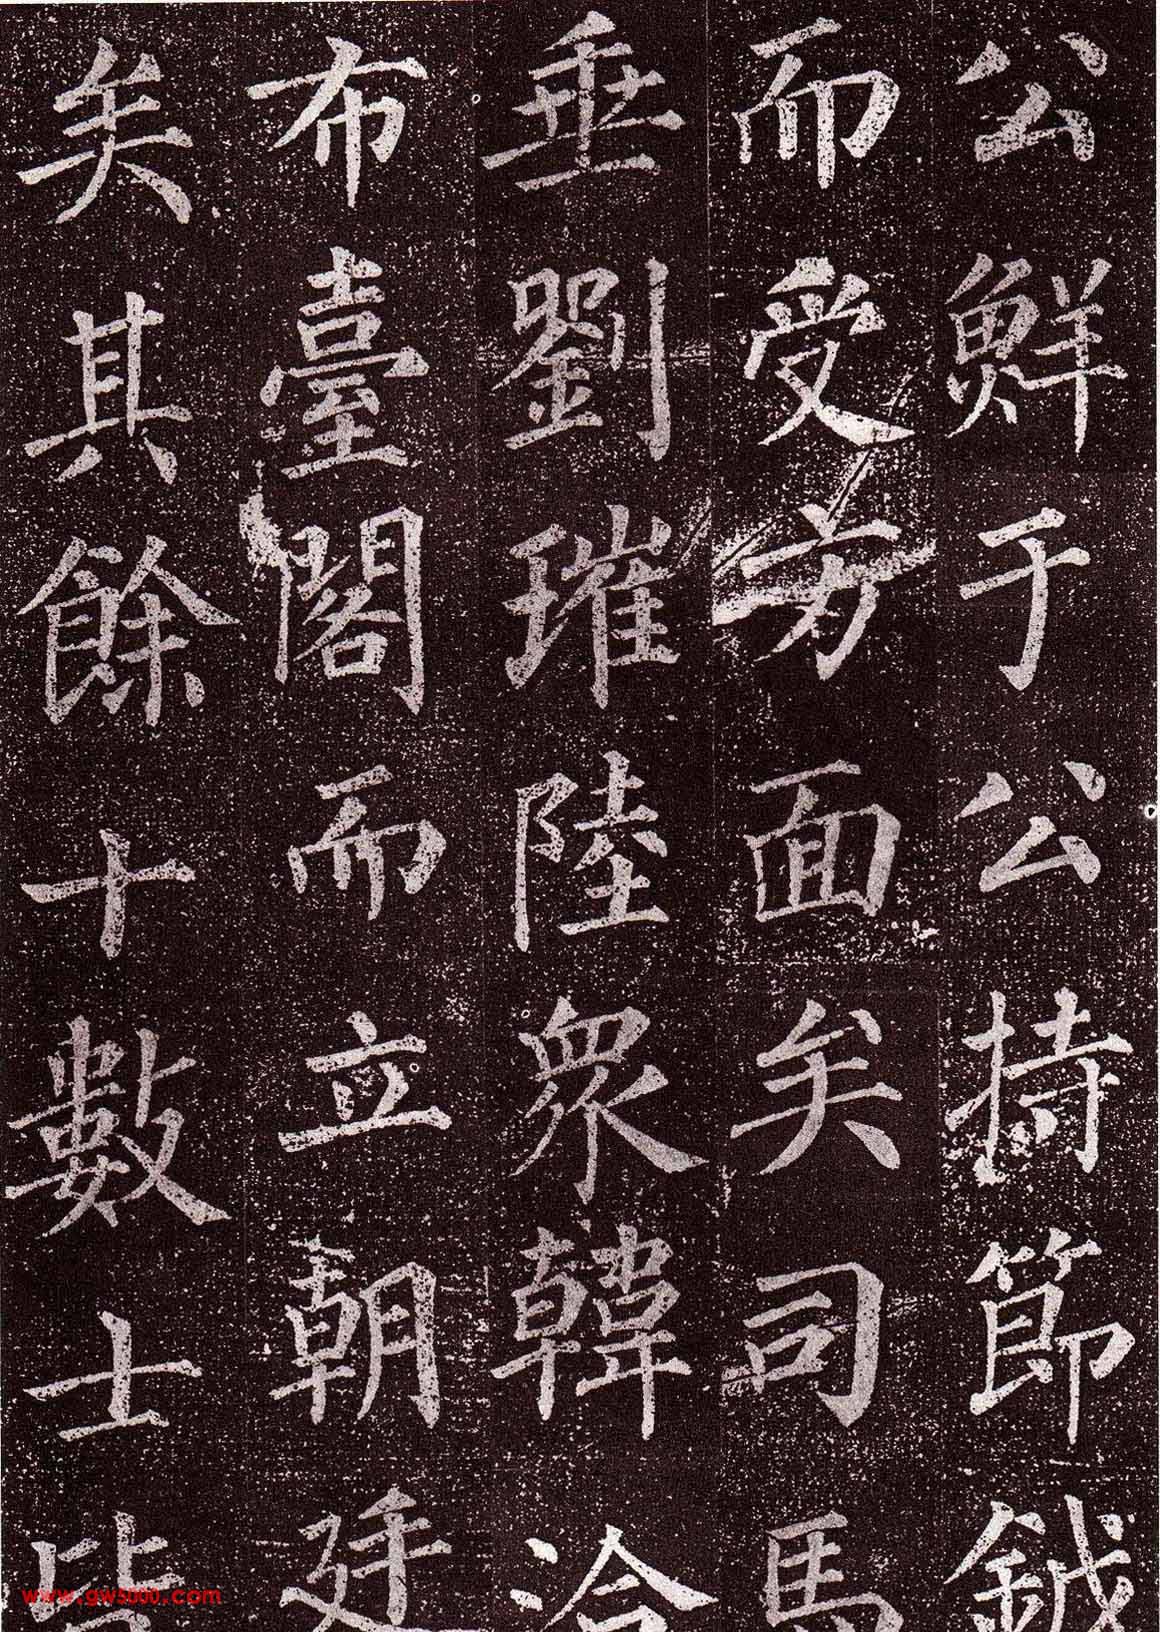 公鮮于公持節鉞
而受方面矣司馬
垂劉璀陸衆韓洽
布臺閣而立朝廷
矣其餘十數士皆
www.gw5000.com